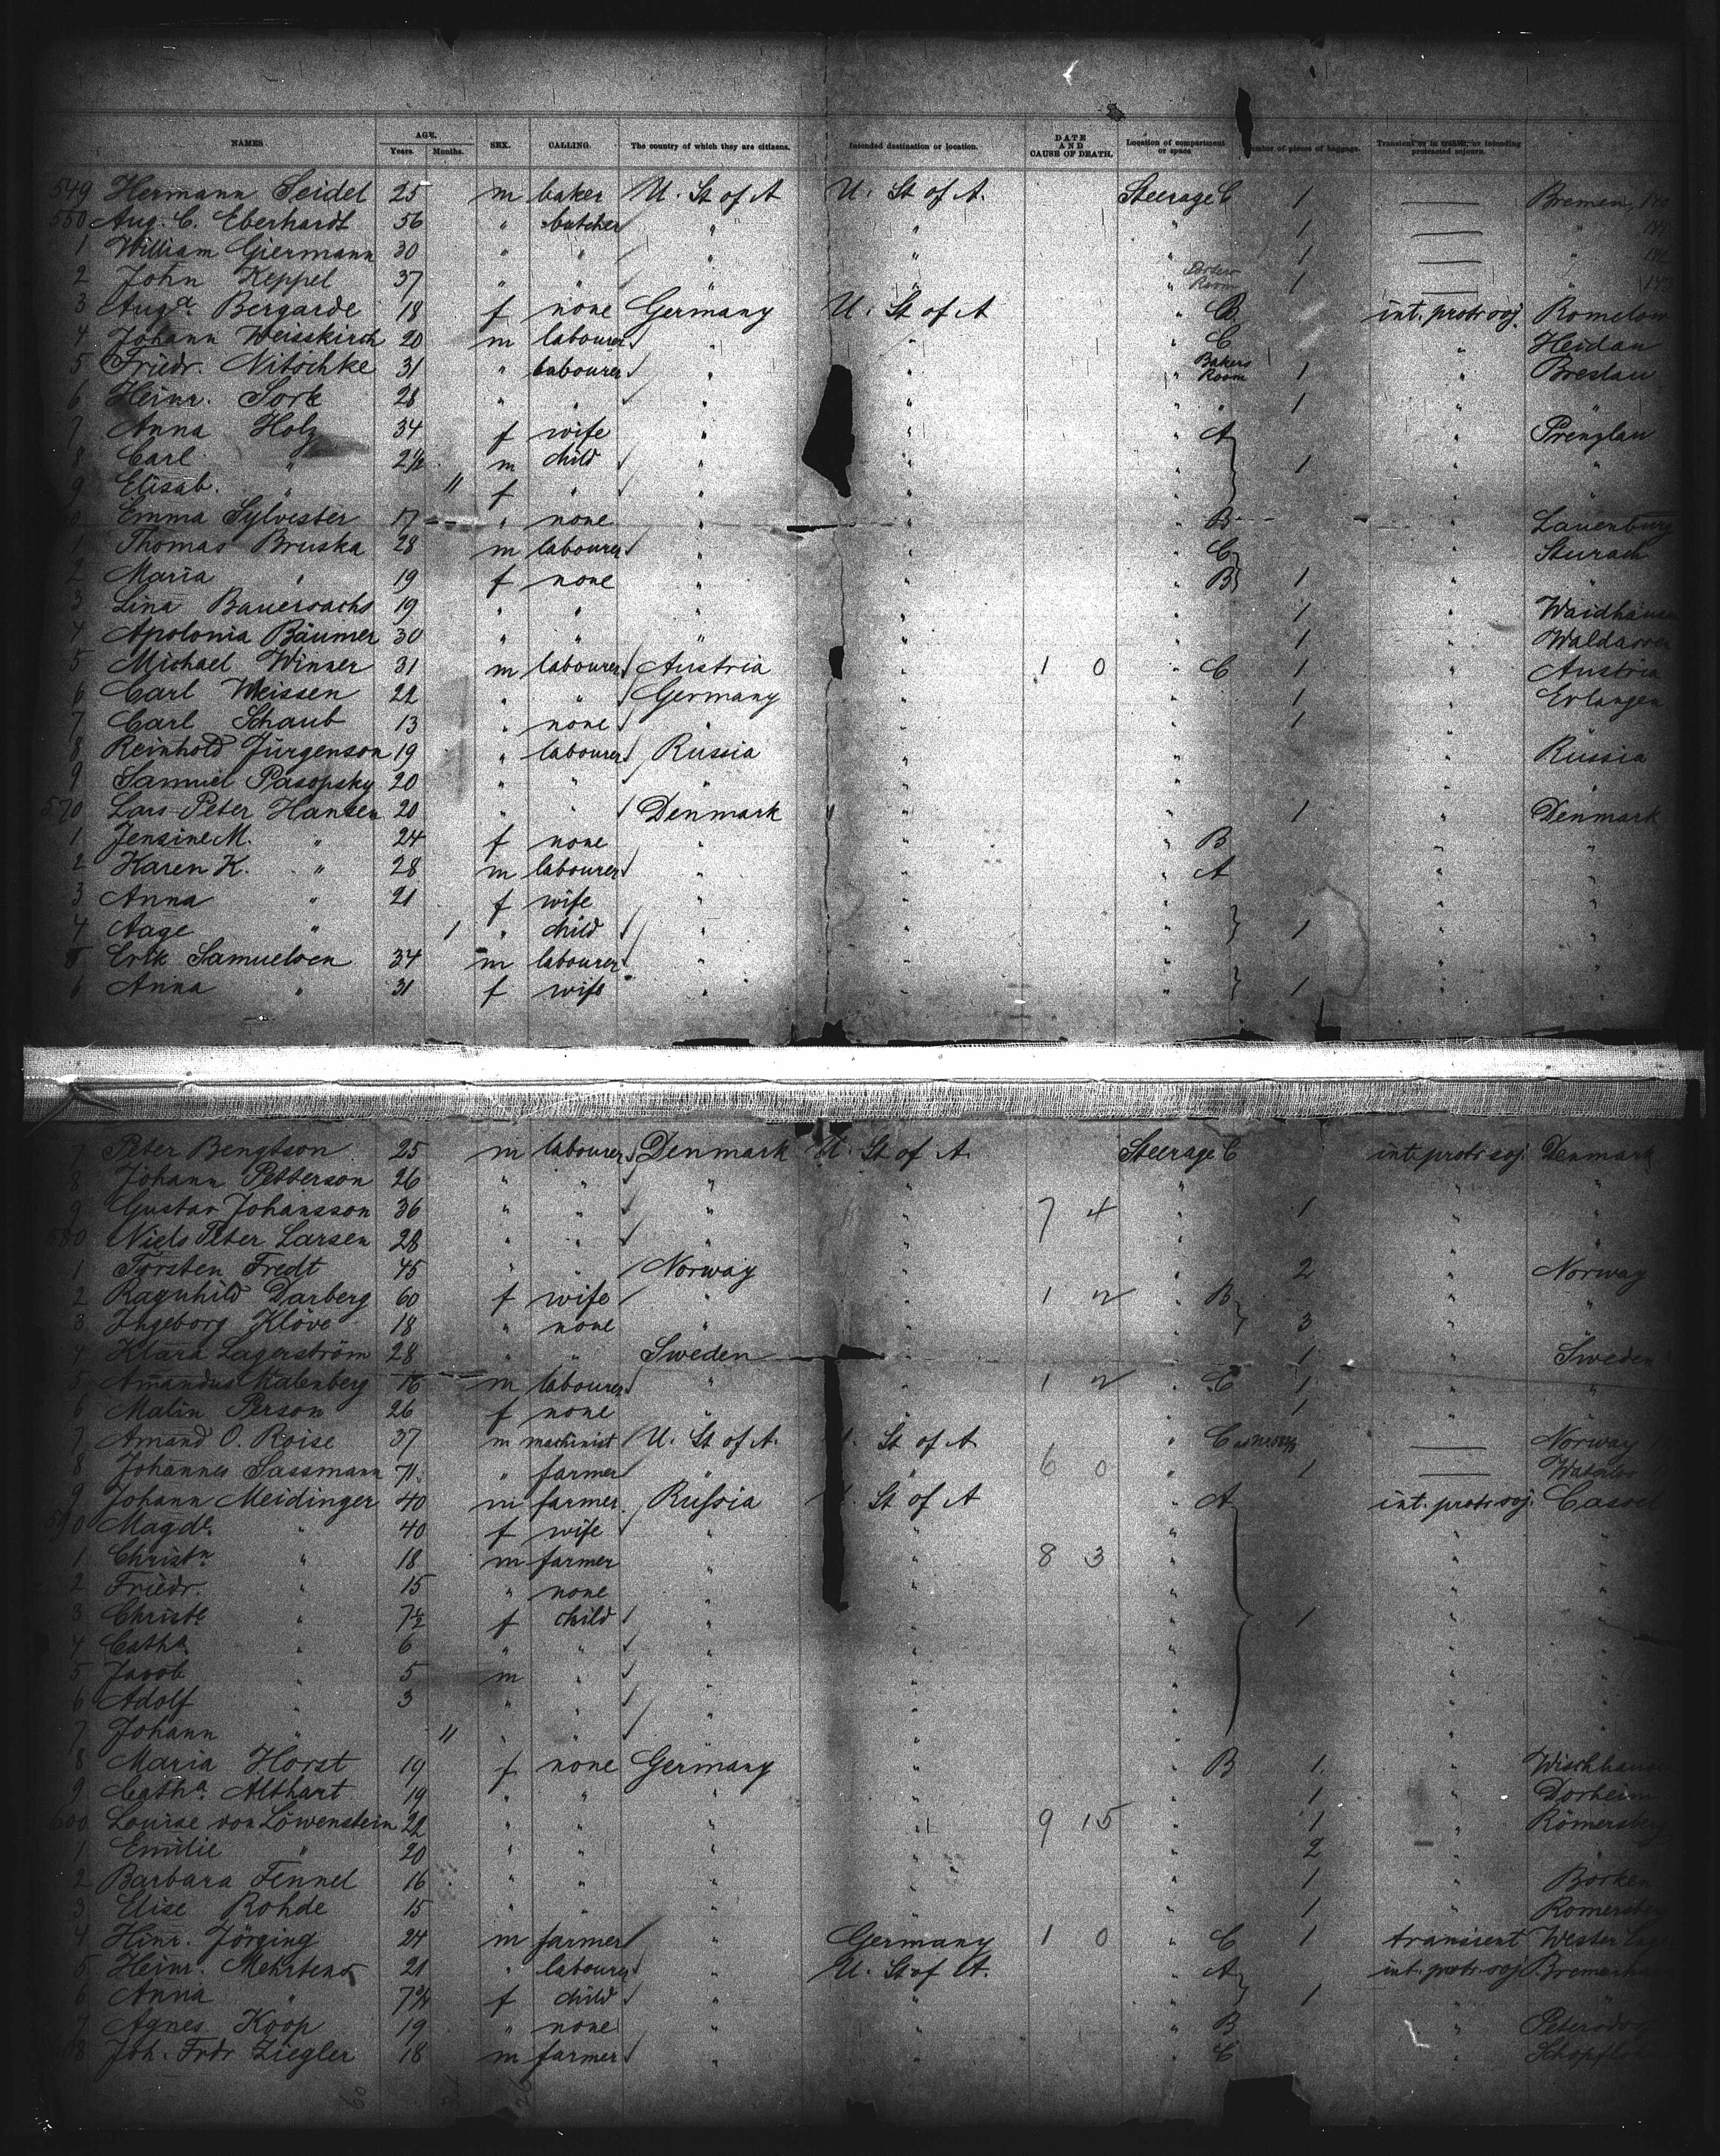 NAMES. AGE. Years. Months. SEX. CALLING. The country of which they are citizens. Intended destination or location. DATE AND CAUSE OF DEATH. Location of compartment or space Number of pieces of baggage. Transient or in transit, or intending protracted sojourn.
549 Hermann Seidel 25 m baker U. St of A U. St of A. Steerage C 1 — Bremen
550 Aug. C. Eberhardt 56 " butcher " " " 1 —
1 William Giermann 30 " " " " " 1 — "
2 John Keppel 37 " " " " " Room 1 — "
3 Auga. Bergarde 18 f none Germany U. St of A " B int. protr. soj. Romelow
4 Johann Weisskirch 20 m labourer " " " C " Heidau
5 Friedr. Nitschke 31 " labourer " " " Bakers Room 1 " Breslau
6 Heinr. Sork 28 " " " " " " 1 " "
7 Anna Holz 34 f wife " " " A " Prenzlau
8 Carl " 2½ m child " " " 1 " "
9 Elisab. " 11 f " " " " " "
Emma Sylvester 17 " none " " " B " Lauenburg
1 Thomas Bruska 28 m labourer " " " C " Sturach
2 Maria " 19 f none " " " B 1 " "
3 Lina Bauersachs 19 " " " " " 1 "
4 Apolonia Bäumer 30 " " " " " 1 "
5 Michael Winner 31 m labourer Austria " 1 0 " C 1 " Austria
6 Carl Weissen 22 " " Germany " " 1 " Erlangen
7 Carl Schaub 13 " none " " " 1 " "
8 Reinhold Jürgenson 19 " labourer Russia " " " Russia
9 Samuel Pasopsky 20 " " " " " " "
570 Lars Peter Hansen 20 " " Denmark " " 1 " Denmark
1 Jensine M. " 24 f none " " B " "
2 Karen K. " 28 m labourer " " " A " "
3 Anna " 21 f wife " " " " "
4 Aage " 1 " child " " " 1 " "
5 Erik Samuelsen 34 m labourer " " " " "
6 Anna " 31 f wife " " " 1 " "
7 Peter Bengtson 25 m labourer Denmark U. St of A. Steerage C int. protr. soj. Denmark
8 Johann Petterson 26 " " " " " " "
9 Gustav Johansson 36 " " " " 7 4 " 1 " "
580 Niels Peter Larsen 28 " " " " " " "
1 Torsten Fredt 45 " " Norway " " 2 " Norway
2 Ragnhild Darberg 60 f wife " " 1 2 " B " "
3 Ingeborg Klöve 18 " none " " " 3 " "
4 Klara Lagerström 28 " " Sweden " 1 " Sweden
5 Amandus Malenberg 16 m labourer " " 1 2 " C 1 " "
6 Malin Person 26 f none " " " 1 " "
7 Amand O. Roise 37 m machinist U. St of A. U. St of A " C — Norway
8 Johannes Sassmann 71 " farmer " " 6 0 " 1 —
9 Johann Meidinger 40 m farmer Russia U. St of A " A int. protr. soj. Cassel
590 Magde. " 40 f wife " " " " "
1 Christn " 18 m farmer " " 8 3 " " "
2 Friedr. " 15 " none " " " " "
3 Christe " 7½ f child " " " 1 " "
4 Catha " 6 " " " " " " "
5 Jacob " 5 m " " " " " "
6 Adolf " 3 " " " " " " "
7 Johann " 11 " " " " " " "
8 Maria Horst 19 f none Germany " " B 1 "
9 Catha. Althart 19 " " " " " 1 " Dorheim
600 Louise von Löwenstein 22 " " " " 9 15 " 1 " Römersberg
1 Emilie " 20 " " " " " 2 " "
2 Barbara Fennel 16 " " " " " 1 " Borken
3 Elise Rohde 15 " " " " " 1 " Romersberg
4 Hinr. Jörging 24 m farmer " Germany 1 0 " C 1 transient Wester
5 Heinr. Mehrtens 21 " labourer " U. St of A. " A int. protr. soj. Bremerhaven
6 Anna " 7¾ f child " " " 1 " "
7 Agnes Koop 19 " none " " " B " Petersdorf
608 Joh. Frdr Ziegler 18 m farmer " " " C "